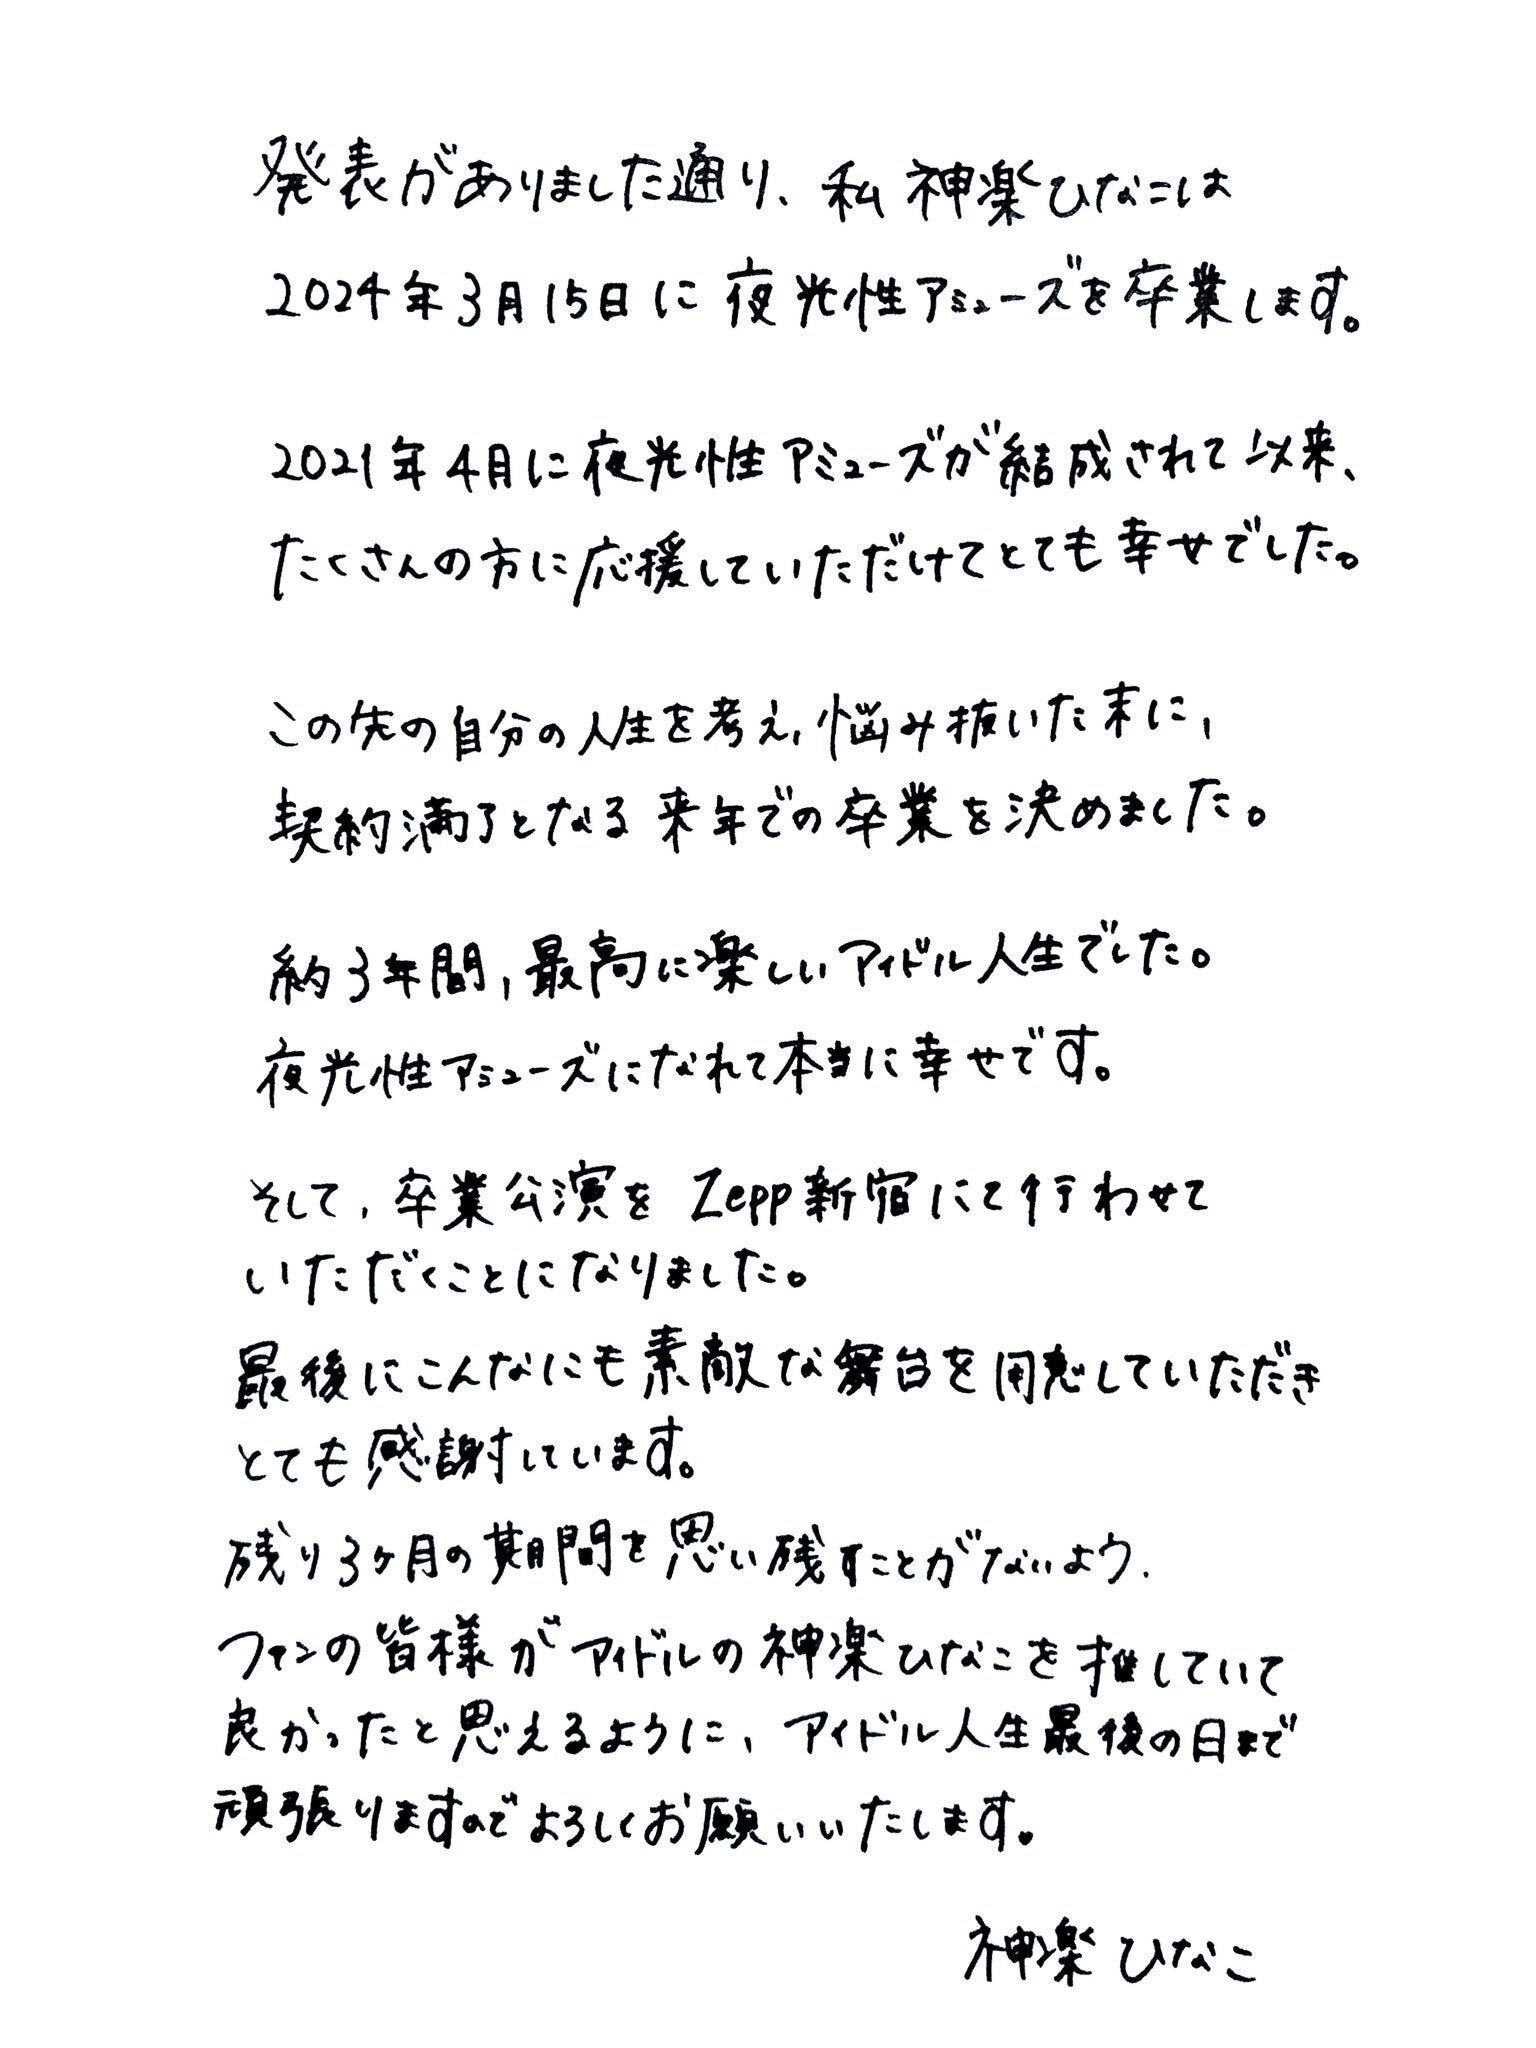 発表がありました通り、私 神楽ひなこは
2024年3月15日に夜光性アミューズを卒業します。
2021年4月に夜光性アミューズが結成されて以来、
たくさんの方に応援していただけてとても幸せでした。
この先の自分の人生を考え、悩み抜いた末に、
契約満了となる来年での卒業を決めました。
約3年間、最高に楽しいアイドル人生でした。
夜光性アミューズになれて本当に幸せです。
そして、卒業公演をZepp新宿にて行わせて
いただくことになりました。
最後にこんなにも素敵な舞台を用意していただき
とても感謝しています。
残り3ヶ月の期間を思い残すことがないよう、
ファンの皆様がアイドルの神楽ひなこを推していて
良かったと思えるように、アイドル人生最後の日まで
頑張りますのでよろしくお願いいたします。
神楽ひなこ